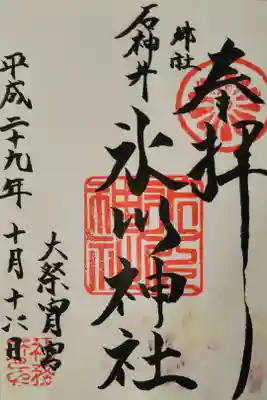 奉拝
郷社
石神井
氷川神社
大祭宵宮
平成二十九年 十月十六日